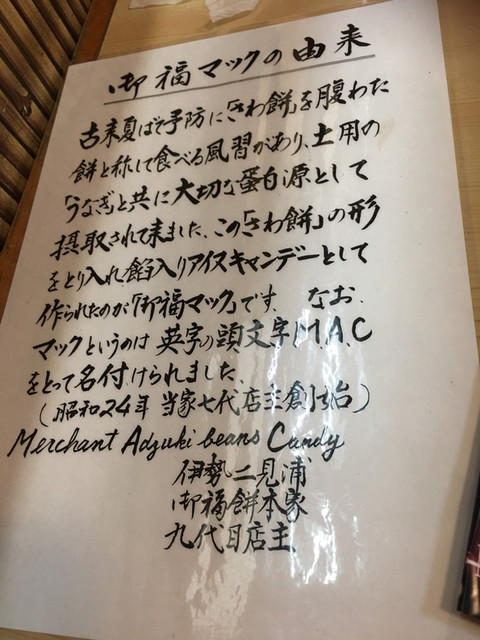 御福マックの由来
古来夏ばて予防に「さわ餅」を腹わた
餅と称して食べる風習があり、土用の
「うなぎ」と共に大切な蛋白源として
摂取されて来ました、この「さわ餅」の形
をとり入れ餡入りアイスキャンデーとして
作られたのが「御福マック」です. なお.
マックというのは 英字の頭文字M.A.C
をとって名付けられました、
(昭和24年 当家七代店主創始)
Merchant Adzuki beans Candy
伊勢二見浦
御福餅本家
九代目店主、